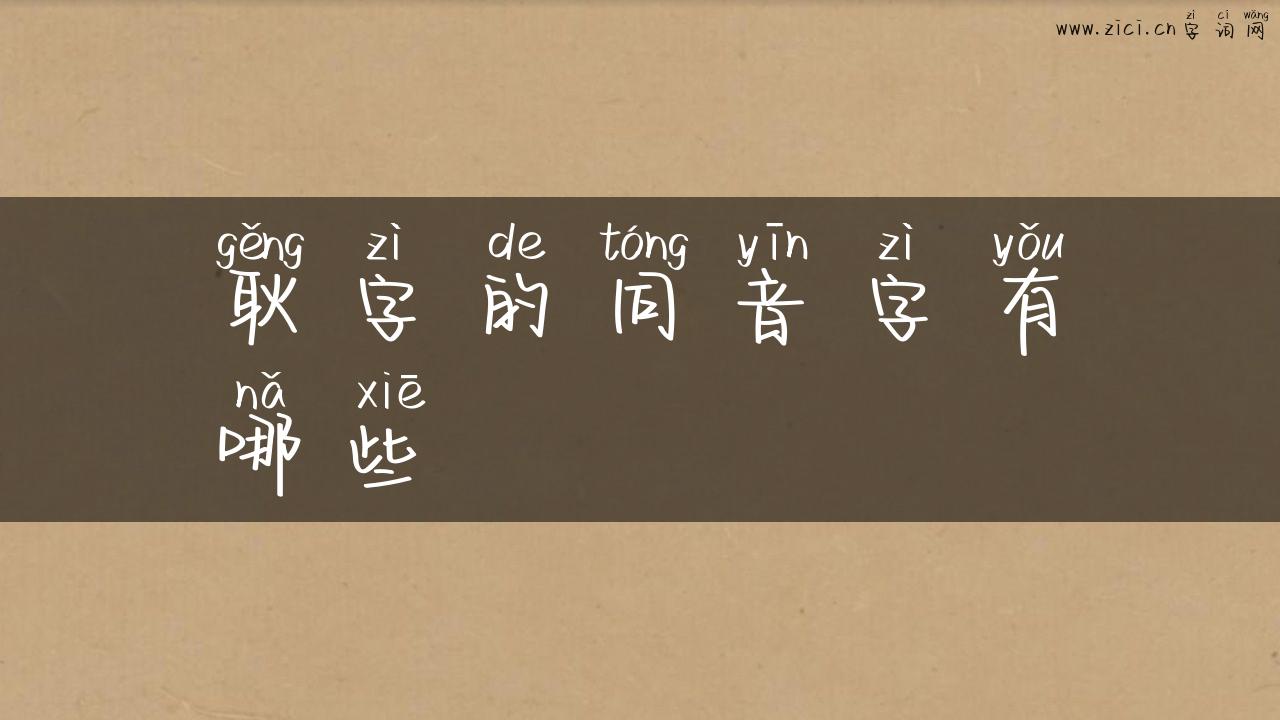 zì cí wǎng
www.zici.cn 字词网
gěng zì de tóng yīn zì yǒu
耿字的同音字有
nǎ xiē
哪些